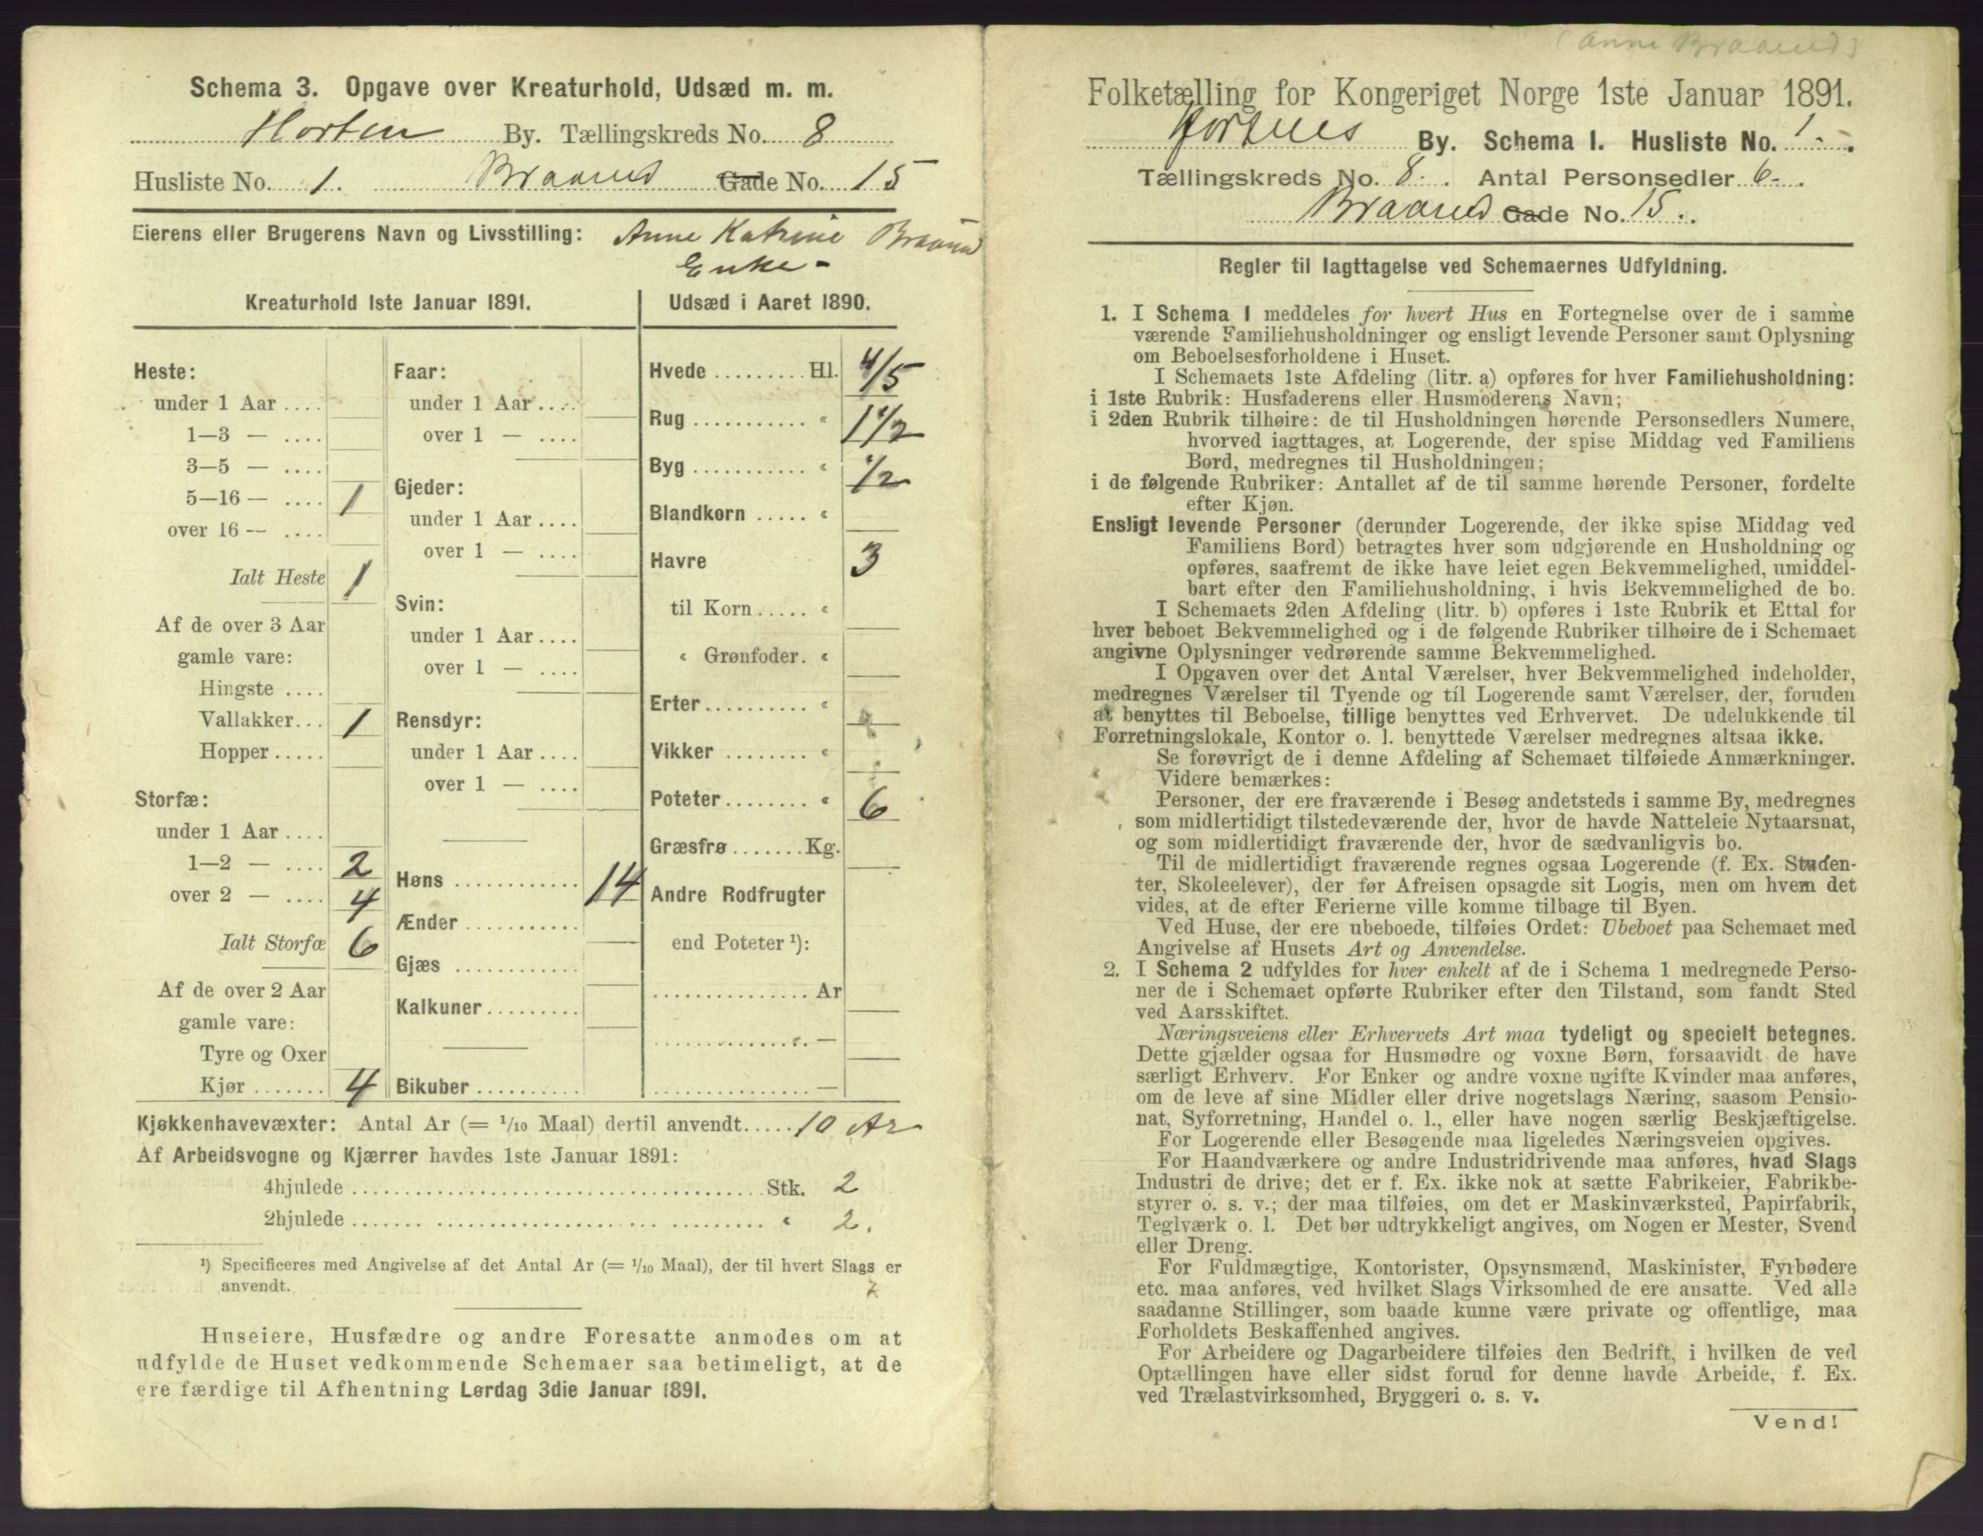 Schema 3. Opgave over Kreaturhold, Udsæd m. m.
Horten By. Tællingskreds No. 8
Husliste No. 1. Braarud Gade No. 15
Eierens eller Brugerens Navn og Livsstilling: Anne Katrine Braarud
Enke -
Kreaturhold 1ste Januar 1891.
Heste:
under 1 Aar ....
1—3 — ....
3—5 — ....
5—16 — .... 1
over 16 — ....
Ialt Heste 1
Af de over 3 Aar
gamle vare:
Hingste ....
Vallakker... 1
Hopper .....
Storfæ:
under 1 Aar ....
1—2 — .... 2
over 2 — .... 4
Ialt Storfæ 6
Af de over 2 Aar
gamle vare:
Tyre og Oxer
Kjør ....... 4
Faar:
under 1 Aar ....
over 1 — ....
Gjeder:
under 1 Aar ....
over 1 — ....
Svin:
under 1 Aar ....
over 1 — ....
Rensdyr:
under 1 Aar ....
over 1 — ....
Høns ........... 14
Ænder ...........
Gjæs ...........
Kalkuner .........
Bikuber ..........
Udsæd i Aaret 1890.
Hvede ......... Hl. 4/5
Rug ........... " 1 1/2
Byg ........... " 1/2
Blandkorn ..... "
Havre 3
til Korn ..... "
" Grønfoder. "
Erter .......... "
Vikker ........ "
Poteter ........ " 6
Græsfrø ....... Kg.
Andre Rodfrugter
end Poteter ¹):
............... Ar
............... —
............... —
Kjøkkenhavevæxter: Antal Ar (= 1/10 Maal) dertil anvendt..... 10 Ar
Af Arbeidsvogne og Kjærrer havdes 1ste Januar 1891:
4hjulede ........................................ Stk. 2
2hjulede ........................................ " 2.
¹) Specificeres med Angivelse af det Antal Ar (= 1/10 Maal), der til hvert Slags er
anvendt.
Huseiere, Husfædre og andre Foresatte anmodes om at
udfylde de Huset vedkommende Schemaer saa betimeligt, at de
ere færdige til Afhentning Lørdag 3die Januar 1891.
(Anne Braarud)
Folketælling for Kongeriget Norge 1ste Januar 1891.
Hortens By. Schema I. Husliste No. 1.
Tællingskreds No. 8. Antal Personsedler 6.
Braarud Gade No. 15.
Regler til Iagttagelse ved Schemaernes Udfyldning.
1. I Schema I meddeles for hvert Hus en Fortegnelse over de i samme
værende Familiehusholdninger og ensligt levende Personer samt Oplysning
om Beboelsesforholdene i Huset.
I Schemaets 1ste Afdeling (litr. a) opføres for hver Familiehusholdning:
i 1ste Rubrik: Husfaderens eller Husmoderens Navn;
i 2den Rubrik tilhøire: de til Husholdningen hørende Personsedlers Numere,
hvorved iagttages, at Logerende, der spise Middag ved Familiens
Bord, medregnes til Husholdningen;
i de følgende Rubriker: Antallet af de til samme hørende Personer, fordelte
efter Kjøn.
Ensligt levende Personer (derunder Logerende, der ikke spise Middag ved
Familiens Bord) betragtes hver som udgjørende en Husholdning og
opføres, saafremt de ikke have leiet egen Bekvemmelighed, umiddel-
bart efter den Familiehusholdning, i hvis Bekvemmelighed de bo.
I Schemaets 2den Afdeling (litr. b) opføres i 1ste Rubrik et Ettal for
hver beboet Bekvemmelighed og i de følgende Rubriker tilhøire de i Schemaet
angivne Oplysninger vedrørende samme Bekvemmelighed.
I Opgaven over det Antal Værelser, hver Bekvemmelighed indeholder,
medregnes Værelser til Tyende og til Logerende samt Værelser, der, foruden
at benyttes til Beboelse, tillige benyttes ved Erhvervet. De udelukkende til
Forretningslokale, Kontor o. l. benyttede Værelser medregnes altsaa ikke.
Se forøvrigt de i denne Afdeling af Schemaet tilføiede Anmærkninger.
Videre bemærkes:
Personer, der ere fraværende i Besøg andetsteds i samme By, medregnes
som midlertidigt tilstedeværende der, hvor de havde Natteleie Nytaarsnat,
og som midlertidigt fraværende der, hvor de sædvanligvis bo.
Til de midlertidigt fraværende regnes ogsaa Logerende (f. Ex. Studen-
ter, Skoleelever), der før Afreisen opsagde sit Logis, men om hvem det
vides, at de efter Ferierne ville komme tilbage til Byen.
Ved Huse, der ere ubeboede, tilføies Ordet: Ubeboet paa Schemaet med
Angivelse af Husets Art og Anvendelse.
2. I Schema 2 udfyldes for hver enkelt af de i Schema 1 medregnede Perso-
ner de i Schemaet opførte Rubriker efter den Tilstand, som fandt Sted
ved Aarsskiftet.
Næringsveiens eller Erhvervets Art maa tydeligt og specielt betegnes.
Dette gjælder ogsaa for Husmødre og voxne Børn, forsaavidt de have
særligt Erhverv. For Enker og andre voxne ugifte Kvinder maa anføres,
om de leve af sine Midler eller drive nogetslags Næring, saasom Pensio-
nat, Syforretning, Handel o. l., eller have nogen særlig Beskjæftigelse.
For Logerende eller Besøgende maa ligeledes Næringsveien opgives.
For Haandværkere og andre Industridrivende maa anføres, hvad Slags
Industri de drive; det er f. Ex. ikke nok at sætte Fabrikeier, Fabrikbe-
styrer o. s. v.; der maa tilføies, om det er Maskinværksted, Papirfabrik,
Teglværk o. l. Det bør udtrykkeligt angives, om Nogen er Mester, Svend
eller Dreng.
For Fuldmægtige, Kontorister, Opsynsmænd, Maskinister, Fyrbødere
etc. maa anføres, ved hvilket Slags Virksomhed de ere ansatte. Ved alle
saadanne Stillinger, som baade kunne være private og offentlige, maa
Forholdets Beskaffenhed angives.
For Arbeidere og Dagarbeidere tilføies den Bedrift, i hvilken de ved
Optællingen have eller sidst forud for denne havde Arbeide, f. Ex.
ved Trælastvirksomhed, Bryggeri o. s. v.
Vend!